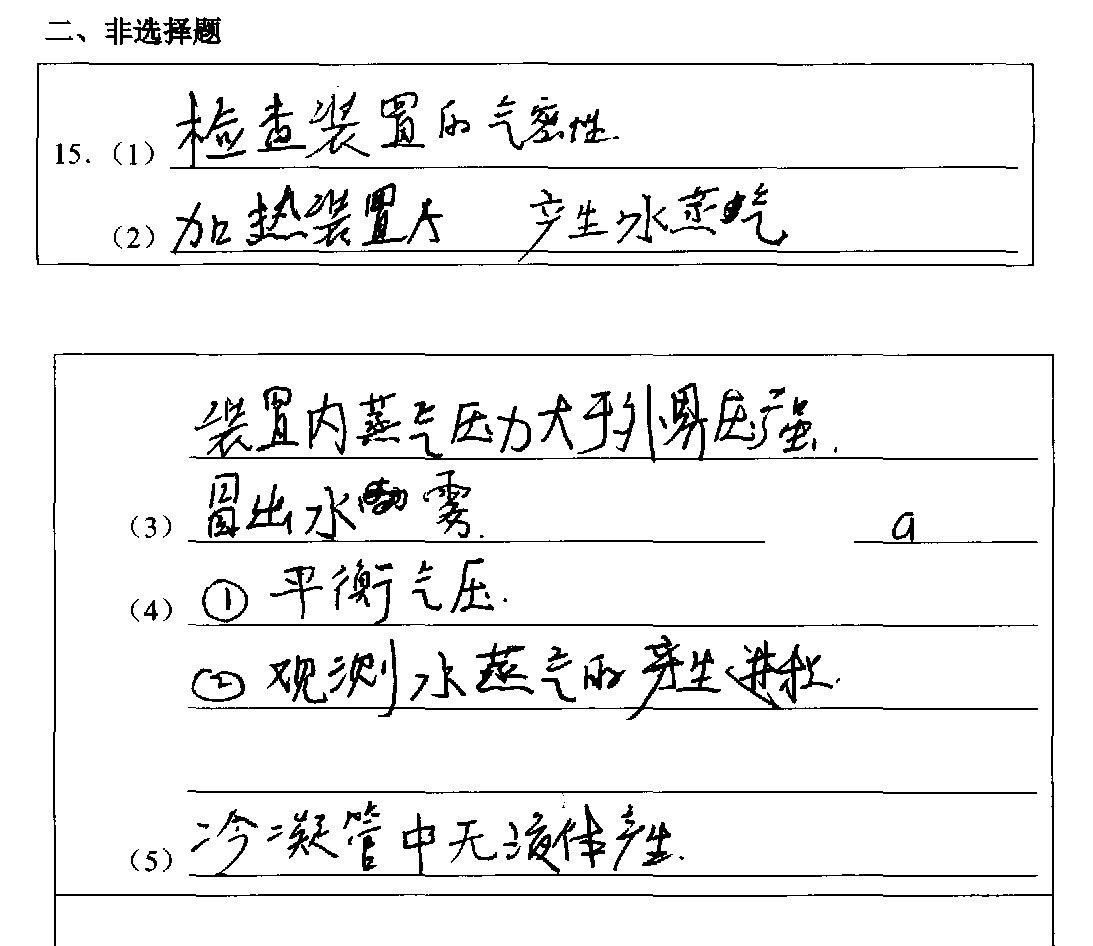 二、非选择题
15.（1）检查装置的气密性.
（2）加热装置A 产生水蒸气
装置内蒸气压力大于外界压强.
（3）冒出水雾. a
（4）① 平衡气压.
② 观测水蒸气的产生进程.
（5）冷凝管中无液体产生.